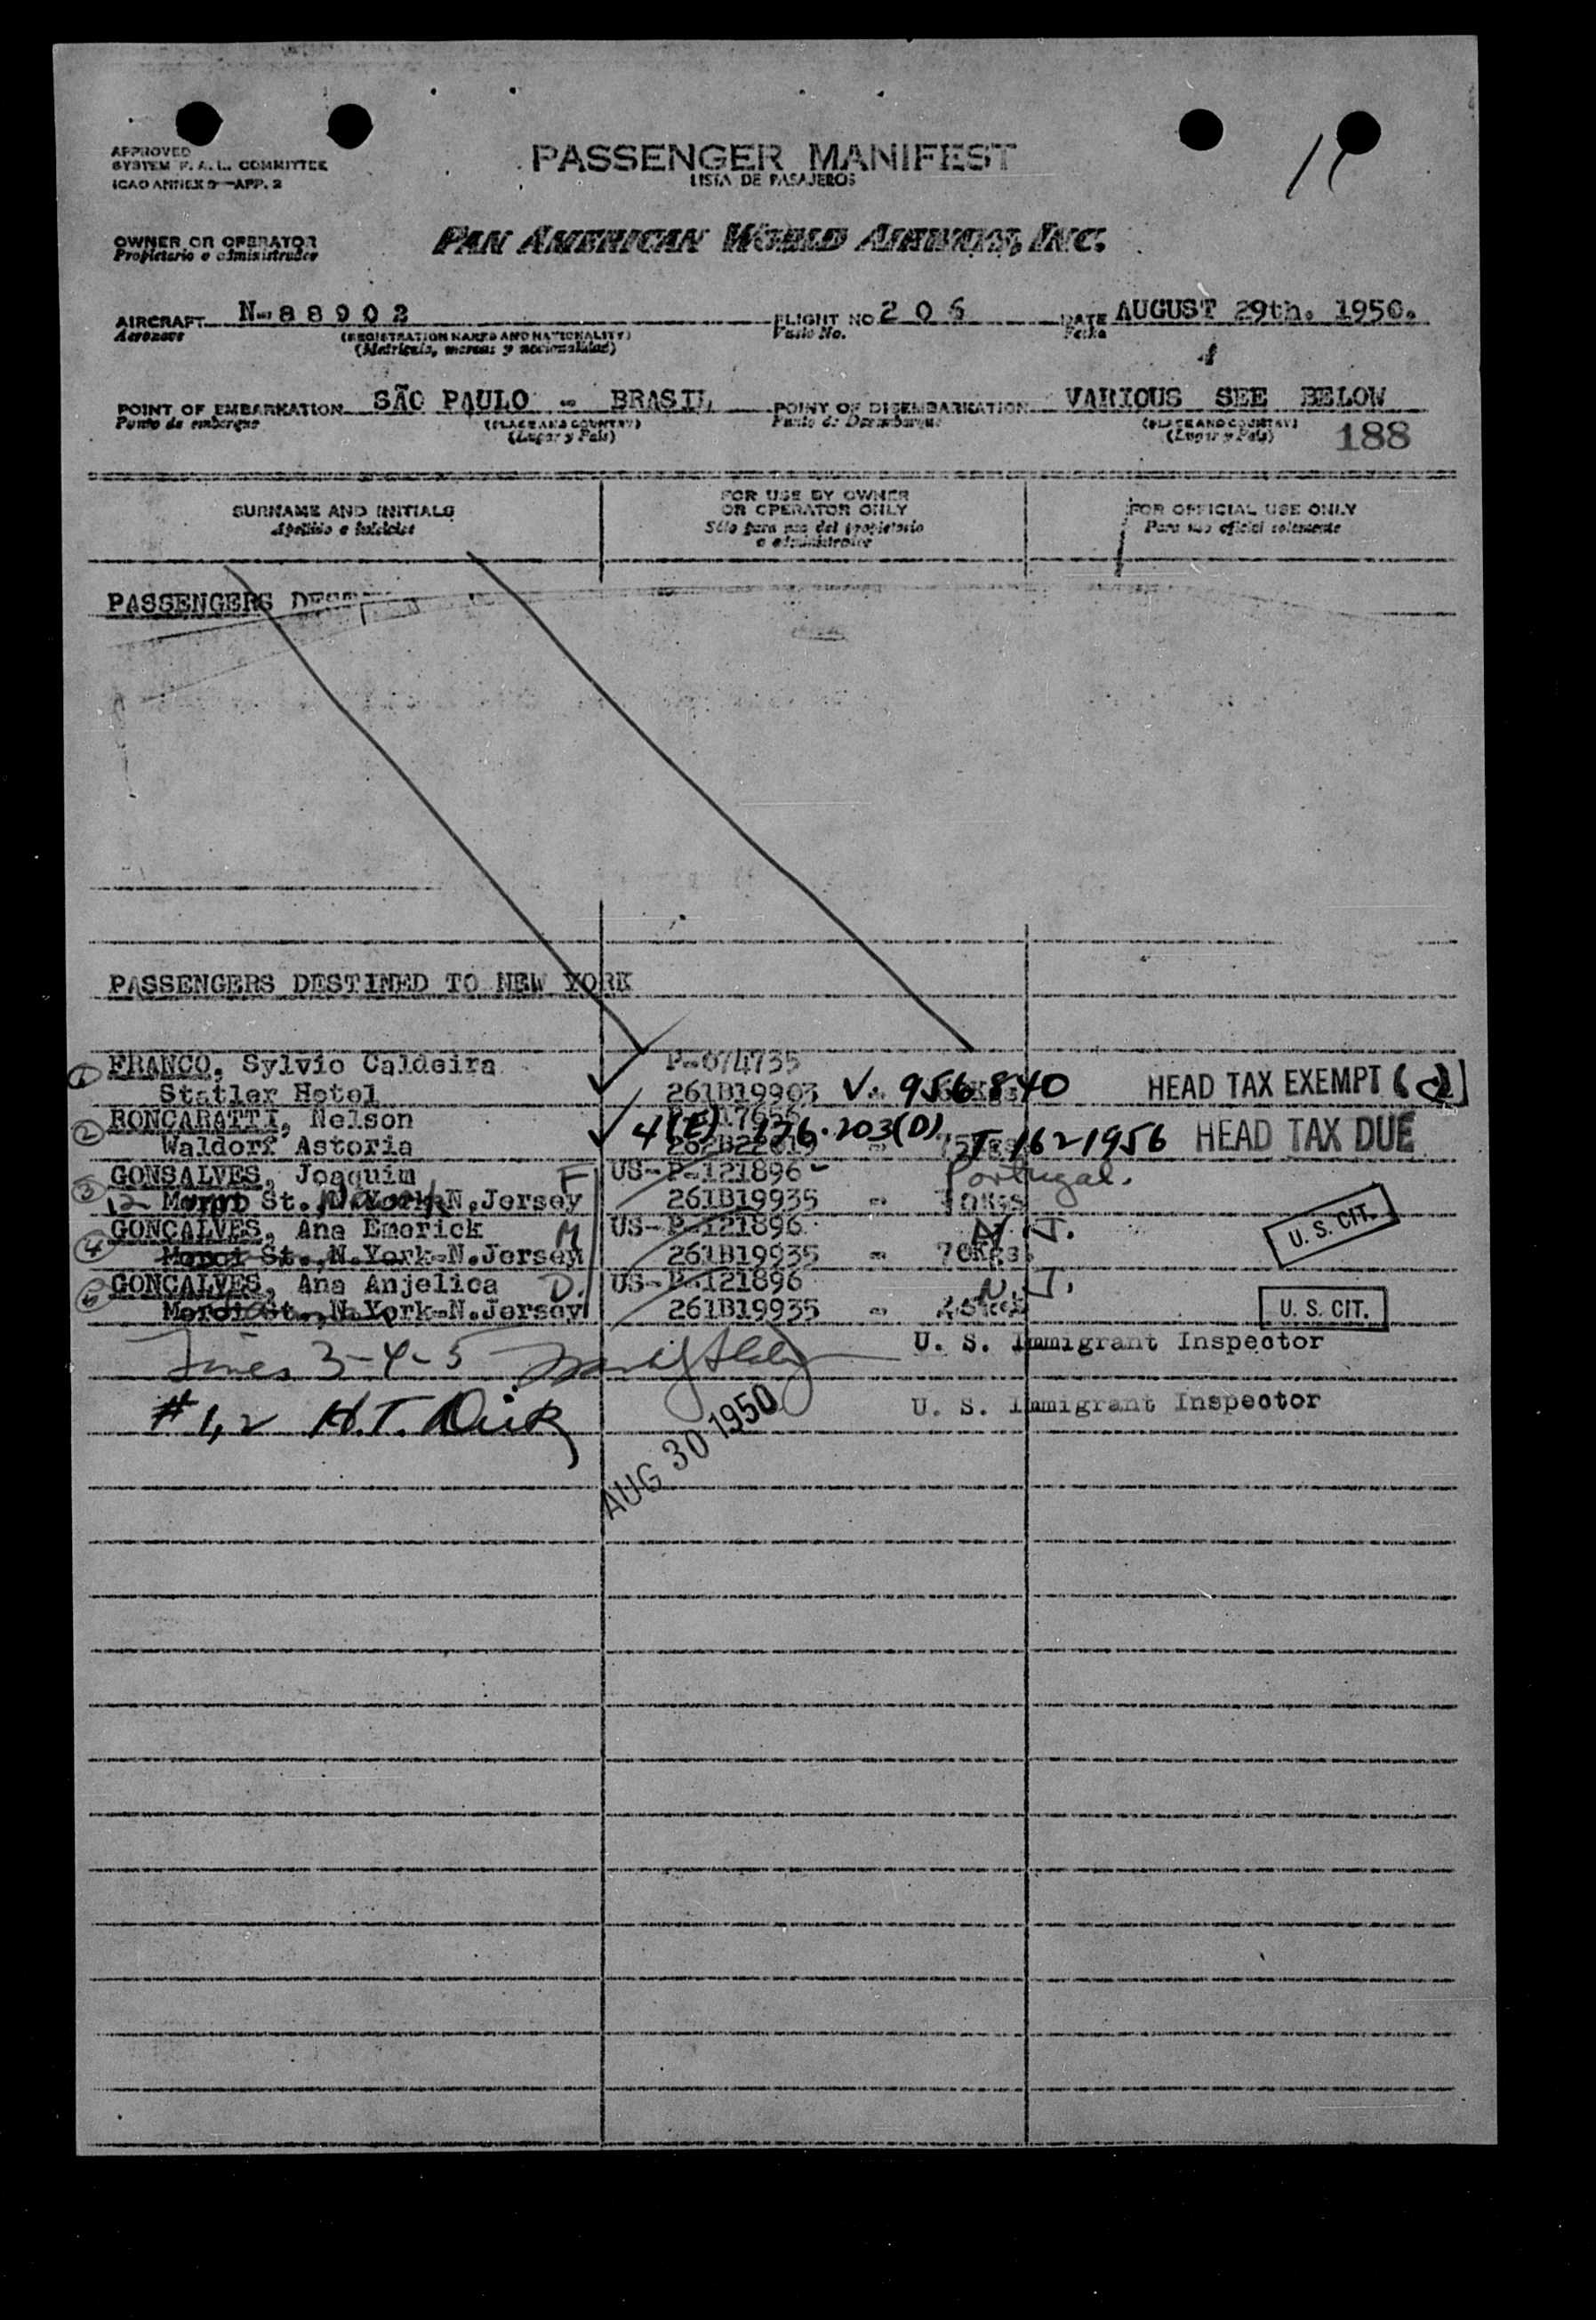 APPROVED
SYSTEM F. A. L. COMMITTEE
ICAO ANNEX 9—APP. 2
PASSENGER MANIFEST
LISTA DE PASAJEROS
OWNER OR OPERATOR
Propietario o administrador
PAN AMERICAN WORLD AIRWAYS, INC.
AIRCRAFT N-88902 FLIGHT NO 206 DATE AUGUST 29th. 1950.
Aeronave (REGISTRATION MARKS AND NATIONALITY) Vuelo No. Fecha
(Matricula, marcas y nacionalidad)
POINT OF EMBARKATION SÃO PAULO - BRASIL POINT OF DISEMBARKATION VARIOUS SEE BELOW
Punto de embarque (PLACE AND COUNTRY) Punto de Desembarque (PLACE AND COUNTRY)
(Lugar y País) (Lugar y País) 188
SURNAME AND INITIALS FOR USE BY OWNER OR OPERATOR ONLY FOR OFFICIAL USE ONLY
Apellido e iniciales Sólo para uso del propietario o administrador Para uso oficial solamente
PASSENGERS
PASSENGERS DESTINED TO NEW YORK
1 FRANCO, Sylvio Caldeira P-074735
Statler Hotel 261B19903 V. 956840 HEAD TAX EXEMPT
2 RONCARATTI, Nelson 4(E) 176.203(D)
Waldorf Astoria T-162-1956 HEAD TAX DUE
3 GONSALVES, Joaquim F US-P-121896 Portugal.
12 St. N.Jersey 261B19935 -
4 GONCALVES, Ana Emerick M US-P-121896 N.J. U. S. CIT.
St., N.York-N.Jersey 261B19935 - 70Kgs
5 GONCALVES, Ana Anjelica D. US-P-121896 N.J.
St., N.York-N.Jersey 261B19935 - U. S. CIT.
3-4-5 U. S. Immigrant Inspector
#1,2 H.T. U. S. Immigrant Inspector
AUG 30 1950